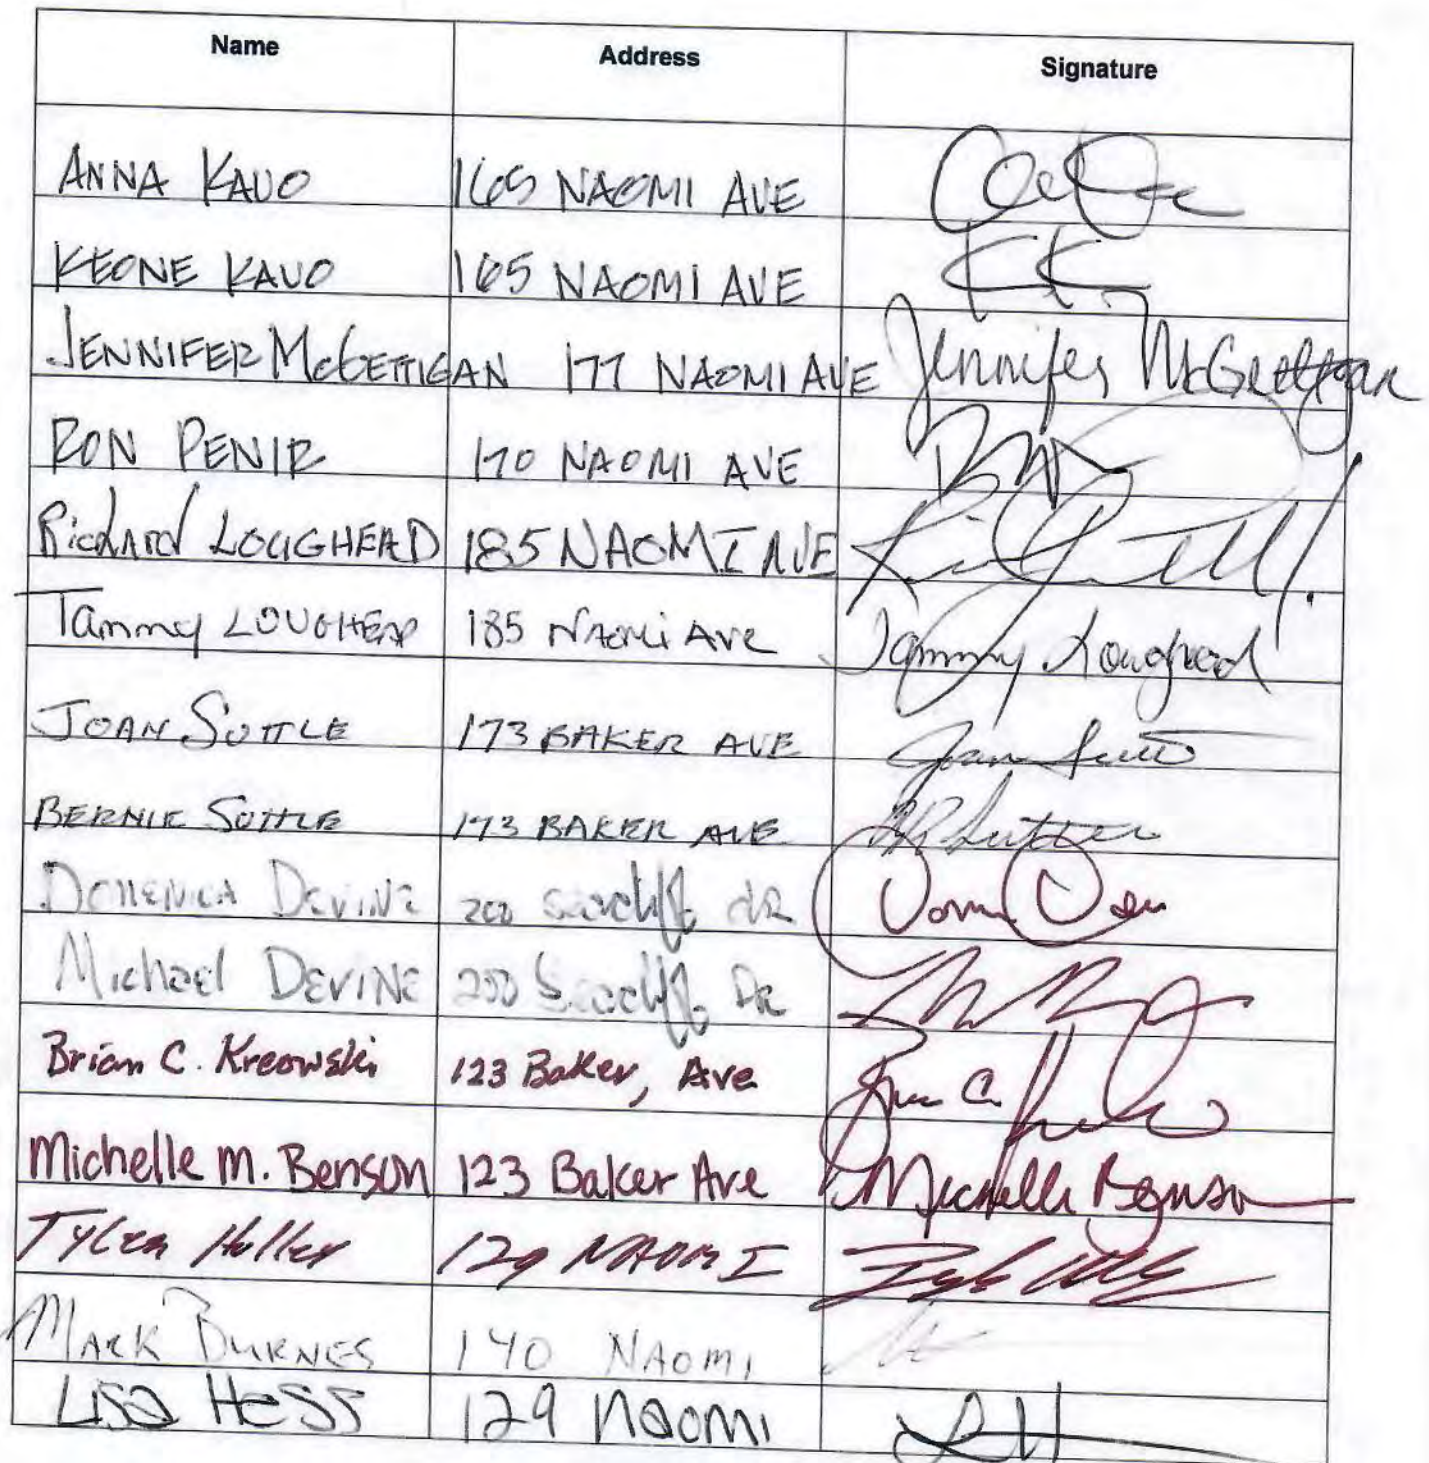 Name Address Signature
ANNA KAUO 165 NAOMI AVE
KEONE KAUO 165 NAOMI AVE KK
JENNIFER McGETTIGAN 177 NAOMI AVE Jennifer McGettigan
RON PENIR 170 NAOMI AVE
Richard LOUGHEAD 185 NAOMI AVE
Tammy LOUGHEAD 185 NAOMi AVE Tammy Loughead
JOAN SUTTLE 173 BAKER AVE Joan
BERNIE SUTTLE 173 BAKER AVE
DOMENICA DEVINE 200 seacliff dR
Michael DEVINE 200 Seacliff DR
Brian C. Kreowski 123 Baker, Ave
Michelle M. Benson 123 Baker Ave Michelle Benson
Tyler Holley 129 NAOMI
MARK BURNES 140 NAOMI
Lisa Hess 129 Naomi LH